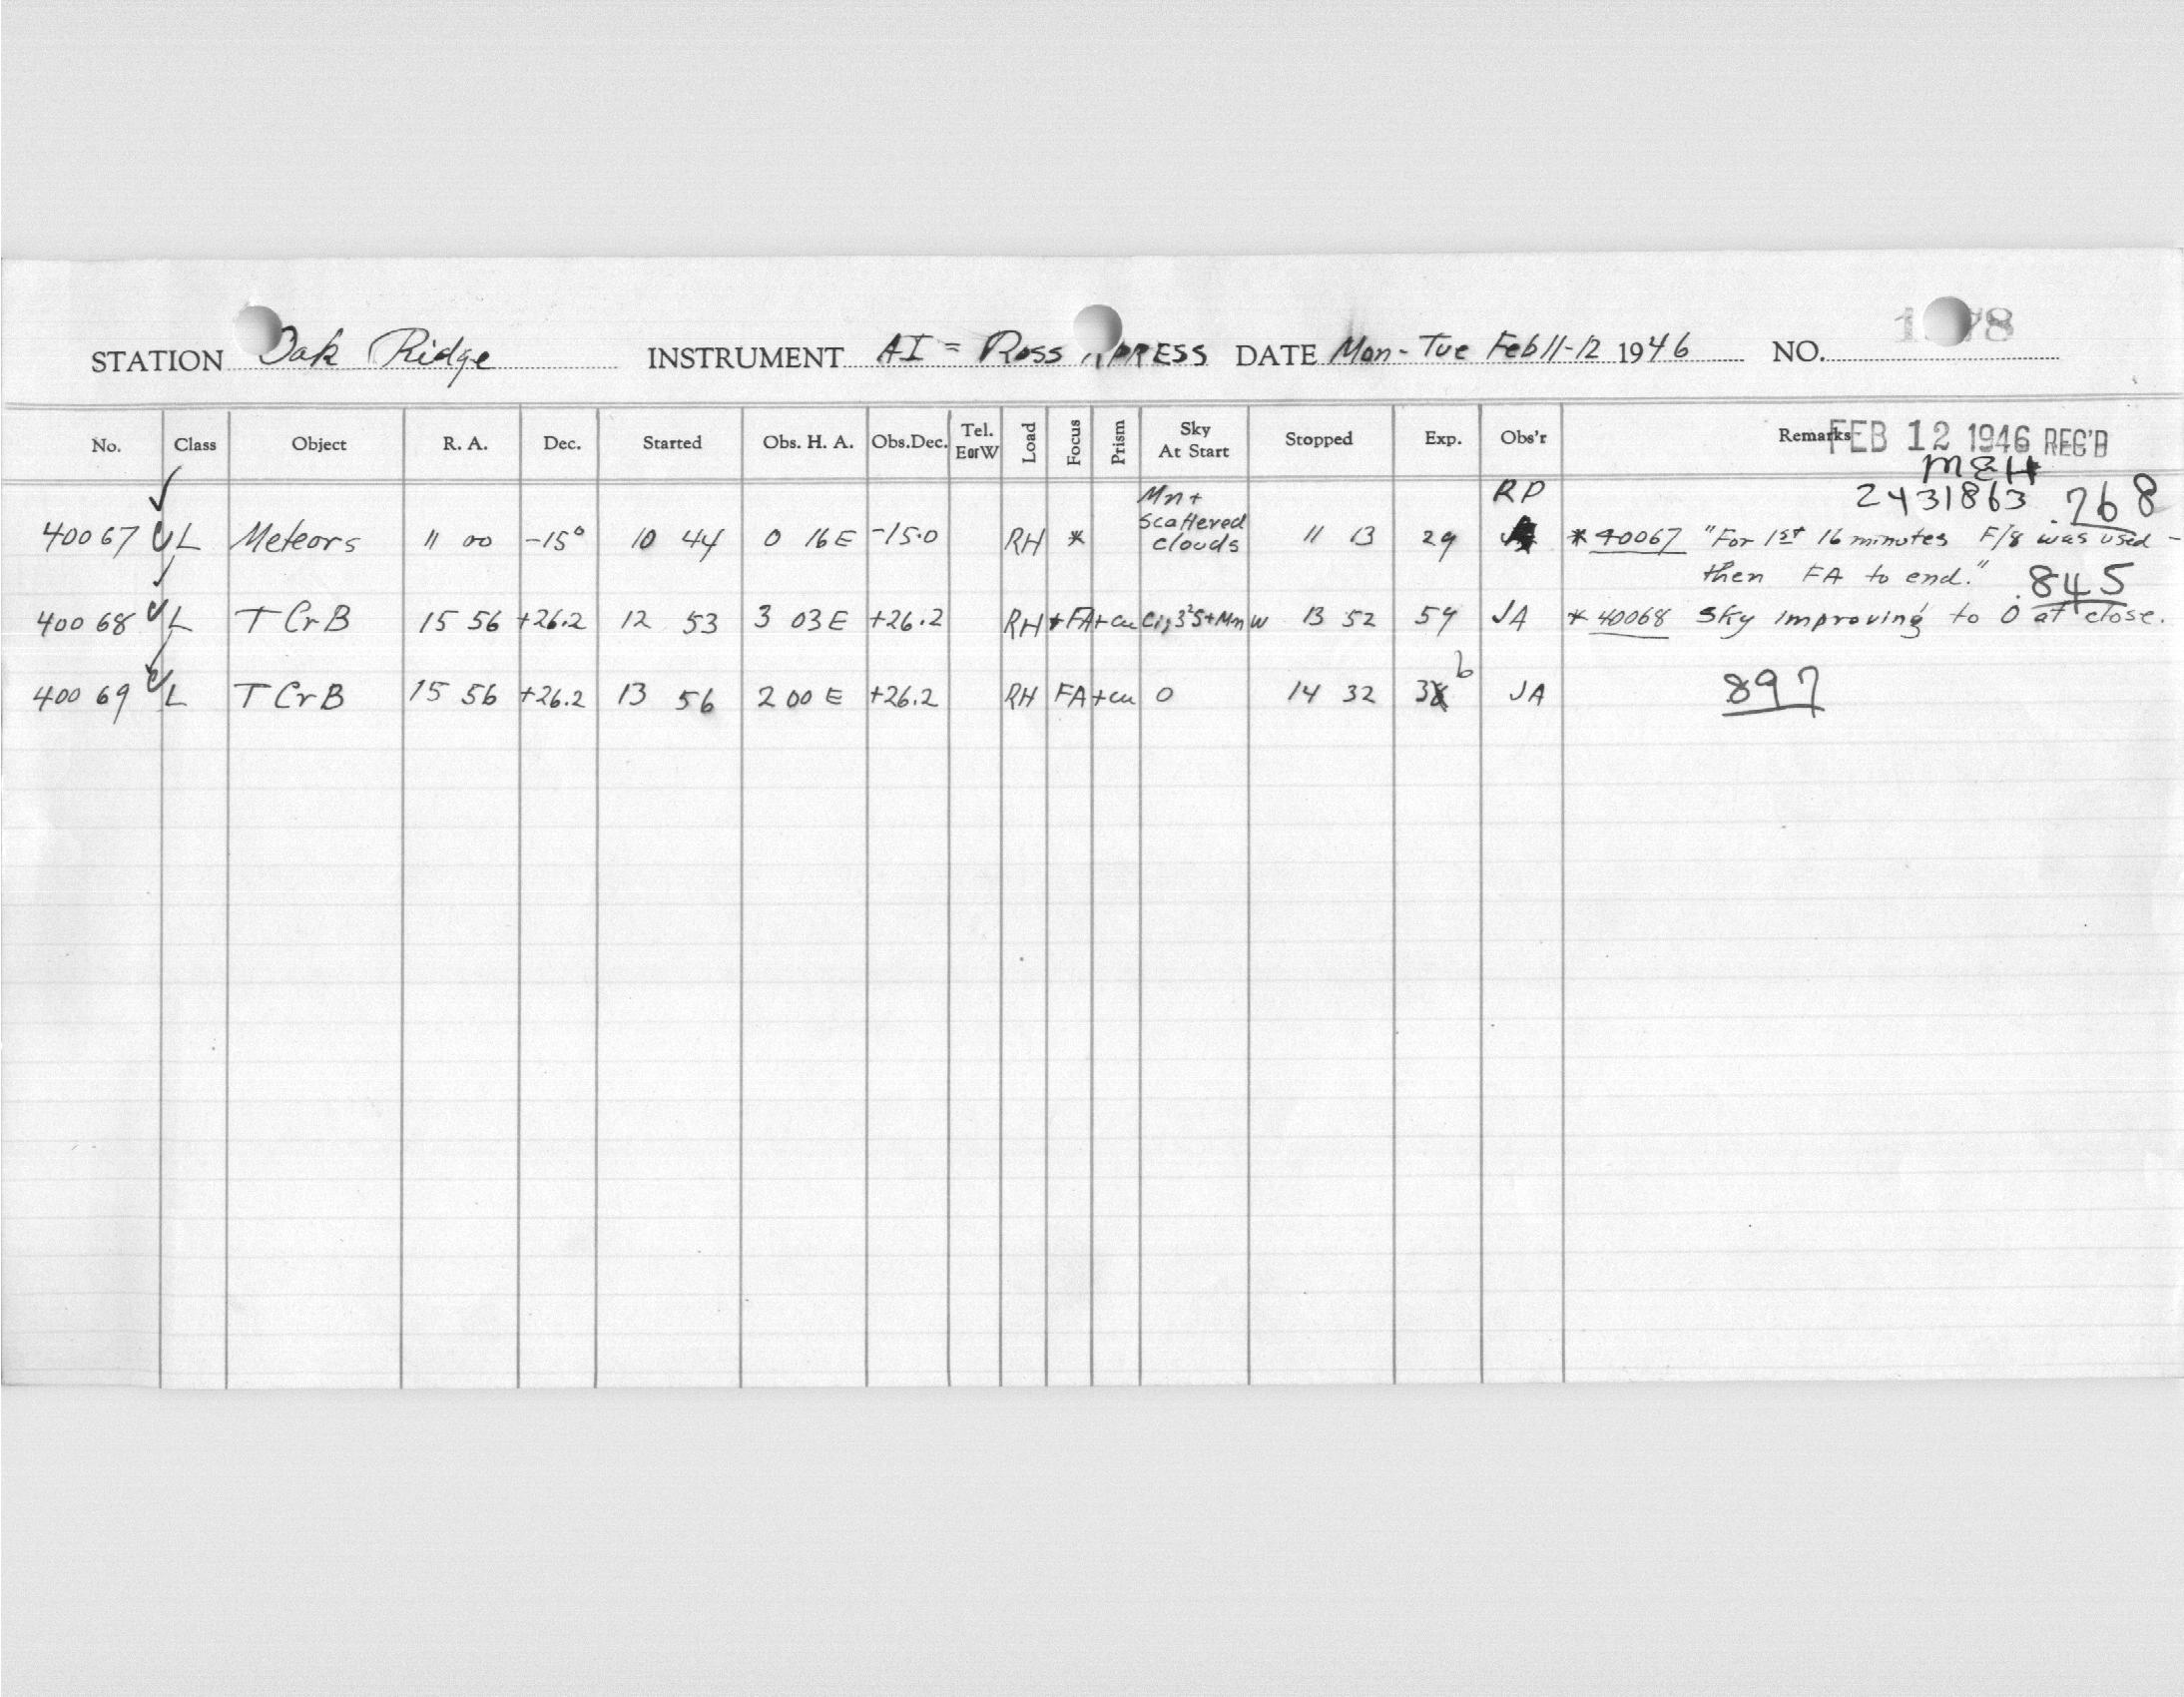 STATION Oak Ridge INSTRUMENT AI = Ross XPRESS DATE Mon-Tue Feb 11-12 1946 NO.
No. Class Object R. A. Dec. Started Obs. H. A. Obs.Dec. Tel. EorW Load Focus Prism Sky At Start Stopped Exp. Obs'r Remarks FEB 12 1946 REC'D
MEH
Mn + RP 2431863 .768
scattered
40067 L Meteors 11 00 -15° 10 44 0 16 E -15.0 RH * clouds 11 13 29 * 40067 "For 1st 16 minutes F/8 was used -
then FA to end." .845
40068 L T CrB 15 56 +26.2 12 53 3 03 E +26.2 RH FA +cu Ci, 3²S+Mn W 13 52 59 JA * 40068 Sky improving to 0 at close.
40069 L T CrB 15 56 +26.2 13 56 2 00 E +26.2 RH FA +cu 0 14 32 36 JA 897